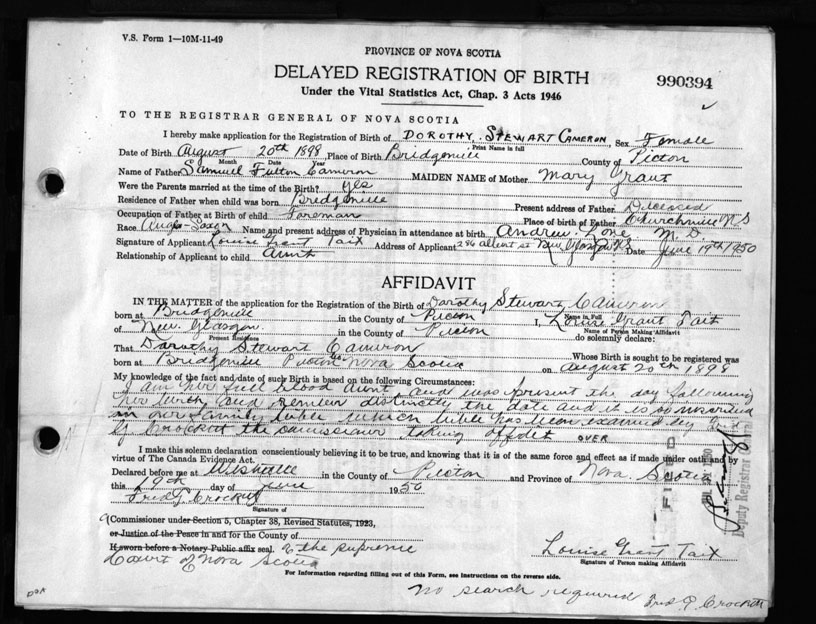 V.S. Form 1—10M-11-49
PROVINCE OF NOVA SCOTIA
DELAYED REGISTRATION OF BIRTH
990394
Under the Vital Statistics Act, Chap. 3 Acts 1946
TO THE REGISTRAR GENERAL OF NOVA SCOTIA
I hereby make application for the Registration of Birth of DOROTHY STEWART CAMERON Sex Female
Print Name in full
Date of Birth August 20th 1898 Place of Birth Bridgeville County of Picton
Month Date Year
Name of Father Samuel Fulton Cameron MAIDEN NAME of Mother Mary Grant
Were the Parents married at the time of the Birth? yes
Residence of Father when child was born Bridgeville Present address of Father Deceased
Occupation of Father at Birth of child Foreman Place of birth of Father Churchville N S
Race Anglo-Saxon Name and present address of Physician in attendance at birth Andrew Love M. D.
Signature of Applicant Louise Grant Tait Address of Applicant 286 Albert st New Glasgow N.S Date June 19th 1950
Relationship of Applicant to child Aunt
AFFIDAVIT
IN THE MATTER of the application for the Registration of the Birth of Dorothy Stewart Cameron
Name in Full
born at Bridgeville in the County of Picton I, Louise Grant Tait
Name of Person Making Affidavit
of New Glasgow in the County of Picton do solemnly declare:
Present Residence
That Dorothy Stewart Cameron Whose Birth is sought to be registered was
born at Bridgeville Picton Co Nova Scotia on August 20th 1898
My knowledge of the fact and date of such Birth is based on the following Circumstances:
I am her full blood aunt and was present the day following
her birth and remember distinctly the date and it is so recorded
in our family bible which bible has been examined by Fred
G Crockett the commissioner taking affidavit OVER
I make this solemn declaration conscientiously believing it to be true, and knowing that it is of the same force and effect as if made under oath and by
virtue of The Canada Evidence Act.
Declared before me at Westville in the County of Picton and Province of Nova Scotia
this 19th day of June 1950
Fred G. Crockett
Signature of
A Commissioner under Section 5, Chapter 38, Revised Statutes, 1923,
or Justice of the Peace in and for the County of
If sworn before a Notary Public affix seal. of the supreme
Court of Nova Scotia
Louise Grant Tait
Signature of Person making Affidavit
For Information regarding filling out of this Form, see instructions on the reverse side.
No search required Fred G Crockett
FILED
Deputy Registrar